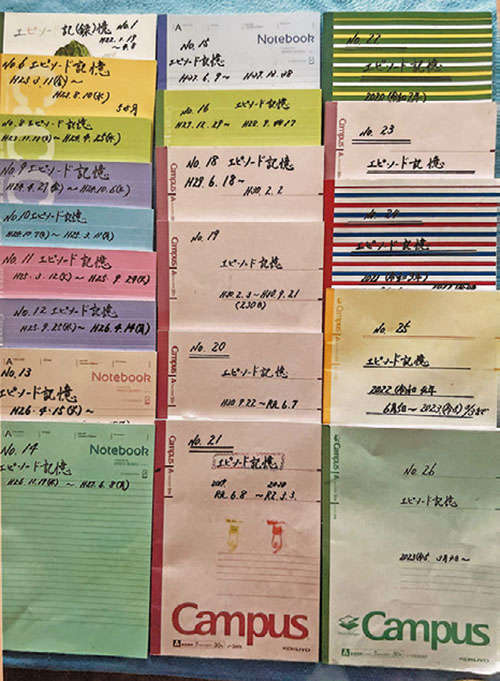 エピソード記(録)憶 No.1
H22.1.19
No.6 エピソード記憶
H23.3.11(金)～
H23.8.10(水)
No.8 エピソード記憶
～H24.4.25(水)
No.9 エピソード記憶
～H24.10.6(土)
No.10 エピソード記憶
No.11 エピソード記憶
H25.3.12(火)～H25.9.24(火)
No.12 エピソード記憶
H25.9.25(水)～H26.4.14(月)
No.13
Notebook
エピソード記憶
H26.4.15(火)～
No.14
Notebook
エピソード記憶
H26.11.19(水)～H27.6.8(月)
No.15
Notebook
エピソード記憶
H27.6.9～
No.16 エピソード記憶
～H28.9.17
Campus
No.18 エピソード記憶
H29.6.18～
H30.2.2
Campus
No.19
エピソード記憶
H30.2.3～H30.9.21
(230日)
Campus
No.20
エピソード記憶
H30.9.22～R1.6.7
No.21
エピソード記憶
2019 2020
R1.6.8～R2.3.3.
Campus
KOKUYO
エピソード記憶
2020(令和2年)
Campus
No.23
エピソード記憶
エピソード記憶
Campus
No.25
エピソード記憶
2022(令和4年)
No.26
エピソード記憶
Campus
KOKUYO